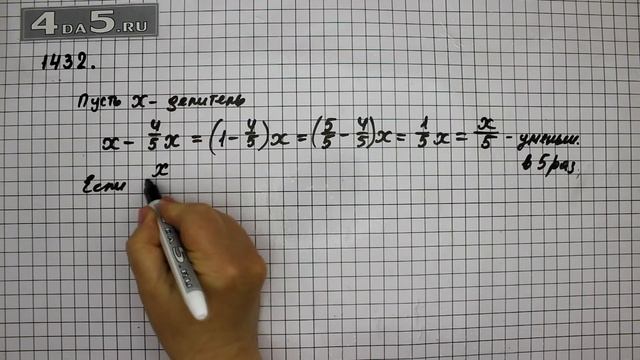 4DA5.RU
1432.
Пусть x - делитель
x - 4/5 x = (1 - 4/5) x = (5/5 - 4/5) x = 1/5 x = x/5 - уменьш.
в 5 раз,
Если x
4DA5.RU